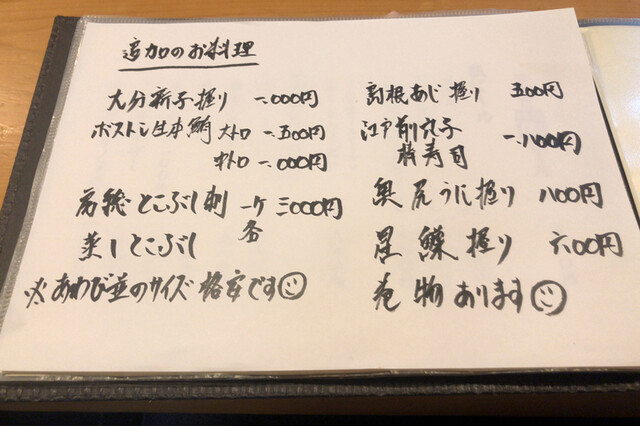 追加のお料理
大分新子握り 一、000円
ボストン生本鮪 大トロ 一、五00円
中トロ 一、000円
房総とこぶし刺 一ケ 三000円
蒸しとこぶし
※あわび並のサイズ 格安です
島根あじ握り 五00円
江戸前穴子
棒寿司 一、八00円
奥尻うに握り 八00円
星鰈握り 六00円
巻物あります